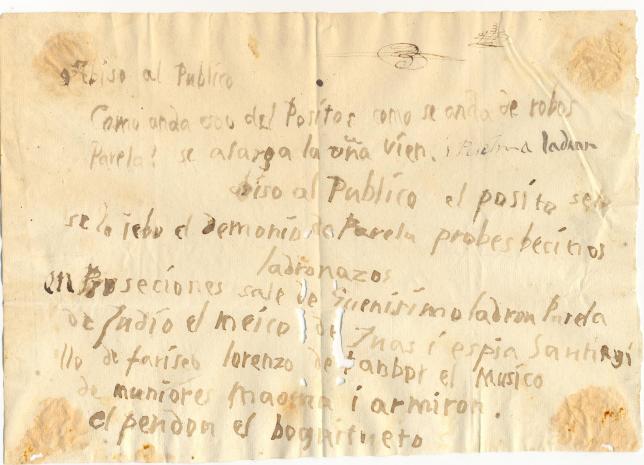 Abiso al Publico
Como anda eso del Positos como se anda de robos
Parela! se alarga la uña vien. ladron
abiso al Publico el posito se
se lo iebo el demonio de Parela probes becinos
ladronazos
en Proseciones sale de ladron Parela
de Judio el meico de Juas i espia Santiagi
llo de fariseo lorenzo de tanbor el Musico
de muniores i armiron.
el pendon el